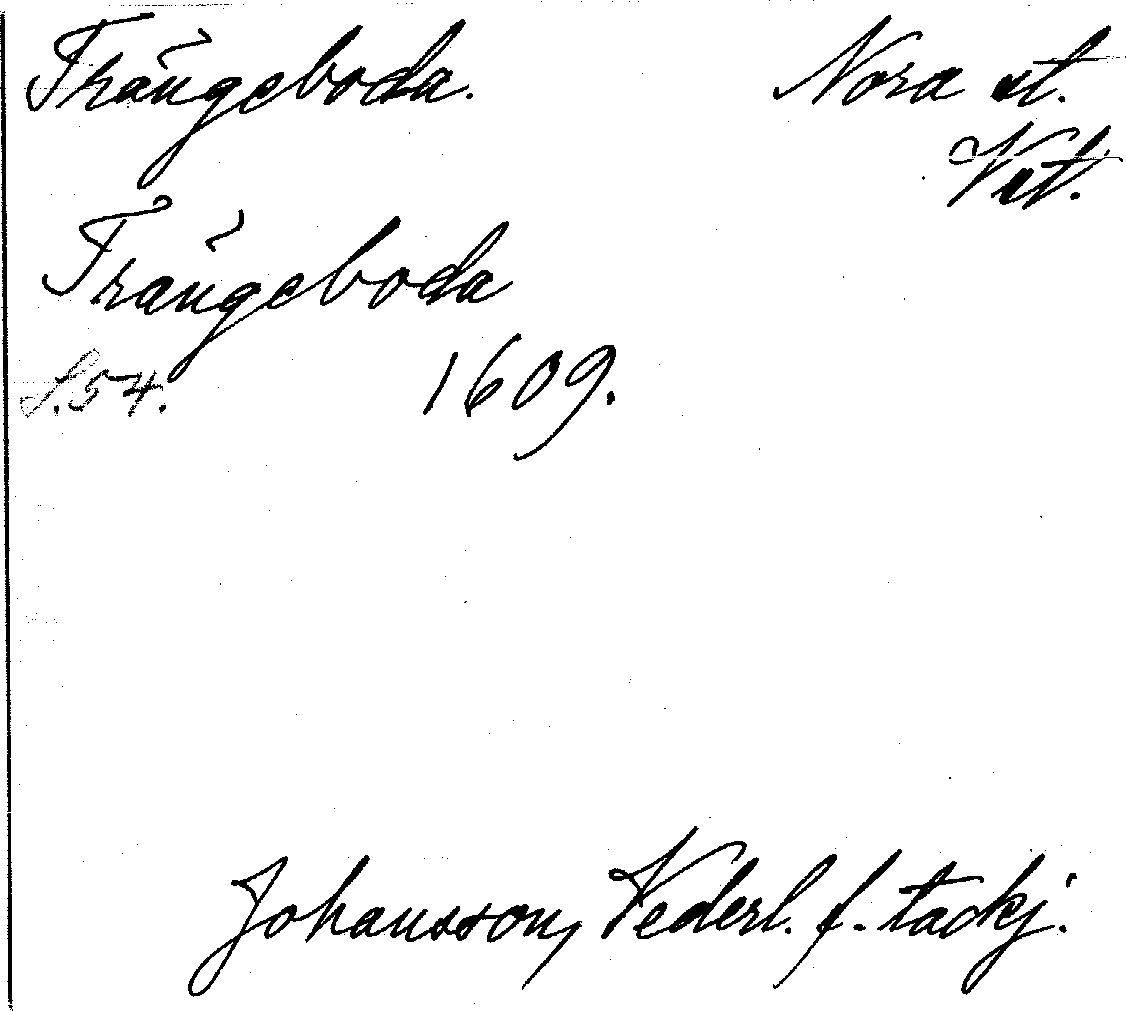 Trängeboda. Nora st.
Vst.
Trängeboda
S.54. 1609.
Johansson, Vederl. f. tackj.